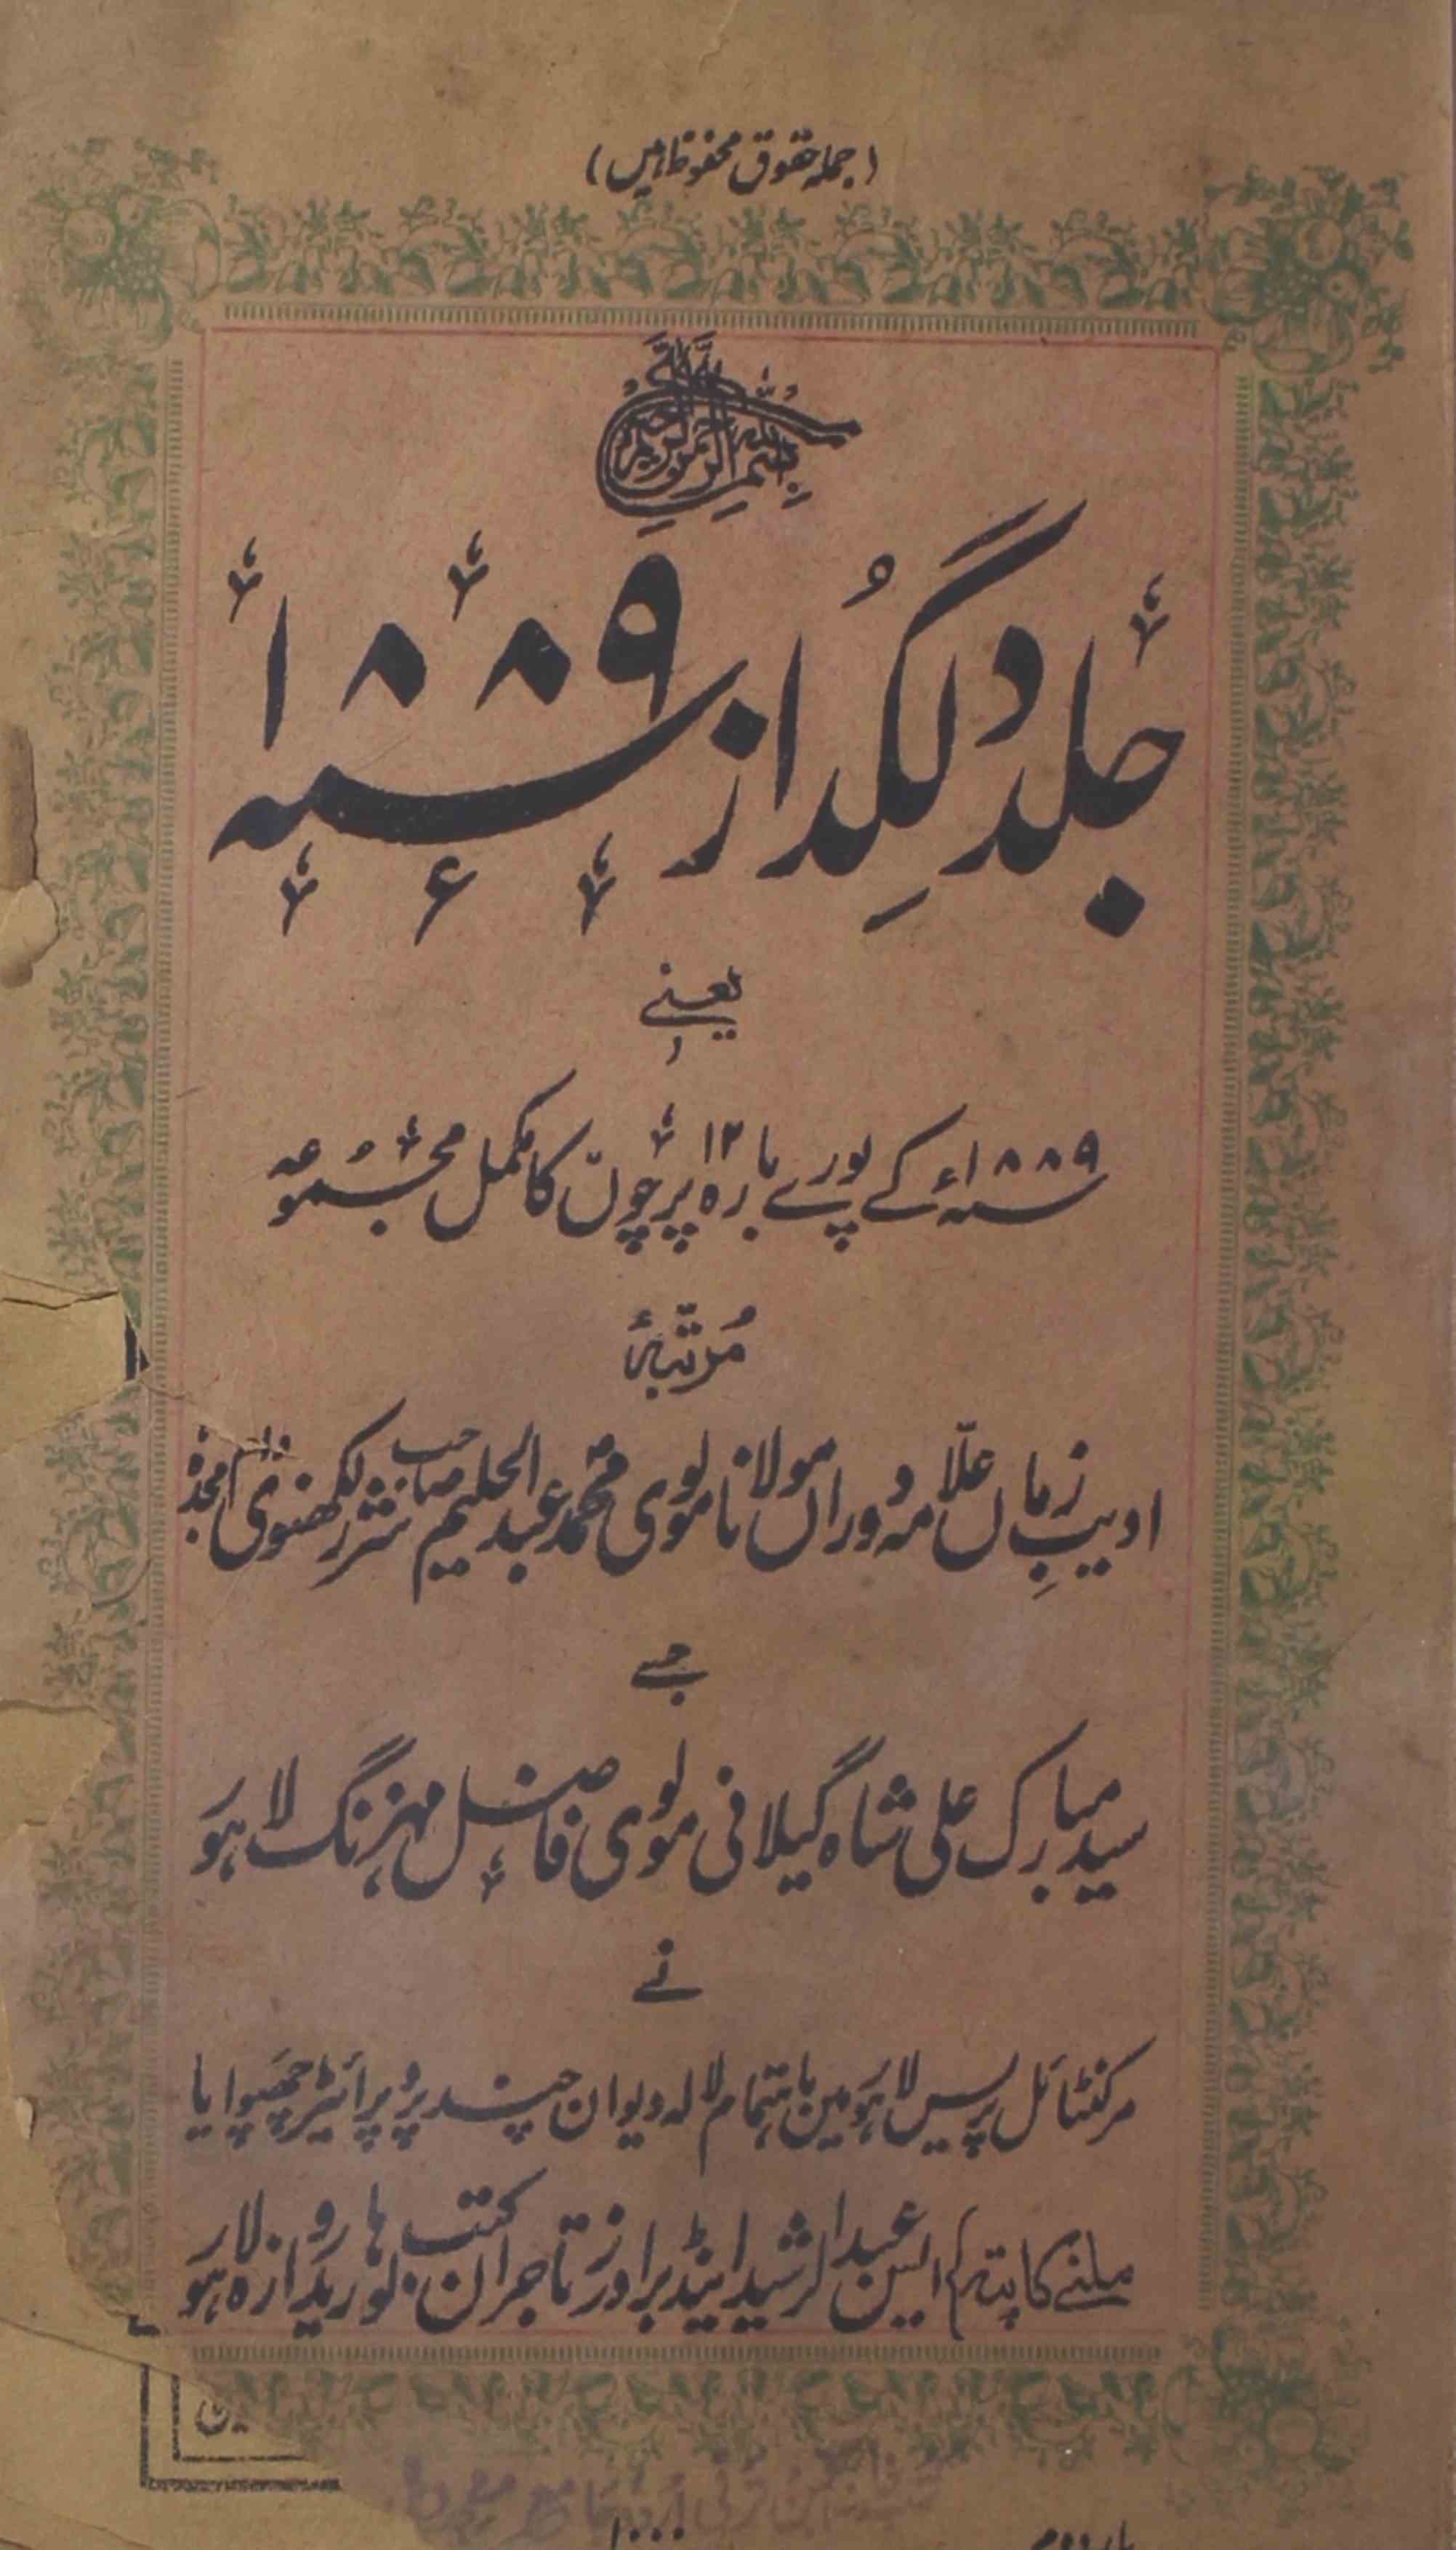 (جملہ حقوق محفوظ ہیں)
بِسْمِ اللہِ الرَّحْمٰنِ الرَّحِیْمِ
جلد دلگداز سنہ ۱۸۸۹ء
یعنے
سنہ ۱۸۸۹ء کے پورے بارہ ۱۲ پرچوں کا مکمل مجموعہ
مُرتّبہٴ
ادیبِ زماں علّامہ دوراں مولانا مولوی محمد عبد الحلیم صاحب شرر لکھنوی
جسے
سید مبارک علی شاہ گیلانی مولوی فاضل مہزنگ لاہور
نے
مرکنٹائل پریس لاہور مین باہتمام لالہ دیوان چند پروپرائیٹر چھپوایا
ملنے کا پتہ ایس عبد الرشید اینڈ برادرز تاجران کتب لوہاری دروازہ لاہور
۱۰۰۰
بار دوم